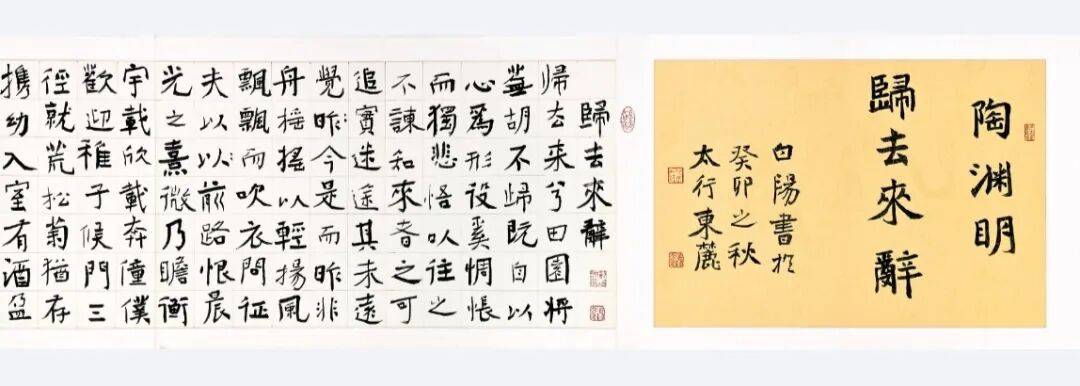 陶渊明
歸去來辭
白陽書於
癸卯之秋
太行東麓
歸去來辭
帰去来兮田園将
蕪胡不歸既自以
心爲形役奚惆悵
而獨悲悟以往之
不諫知來者之可
追實迷途其未遠
覺昨今是而昨非
舟搖搖以輕揚風
飄飄而吹衣問征
夫以以前路恨晨
光之熹微乃瞻衡
宇載欣載奔僮僕
歡迎稚子候門三
徑就荒松菊猶存
攜幼入室有酒盈